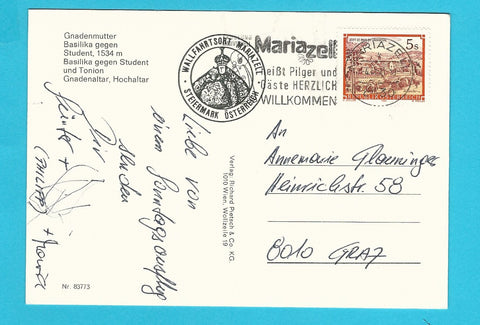 Gnadenmutter
Basilika gegen
Student, 1534 m
Basilika gegen Student
und Tonion
Gnadenaltar, Hochaltar
WALLFAHRTSORT MARIAZELL
STEIERMARK ÖSTERREICH
Mariazell
heißt Pilger und
Gäste HERZLICH
WILLKOMMEN
5 s
REPUBLIK ÖSTERREICH
MARIAZELL
Liebe von
einem Sonntagsausflug
senden
Dir
Günter +
(PHILIPP)
+ Maria
Verlag Richard Pietsch & Co KG.
1010 Wien, Wollzeile 19
An
Annemarie
Heinrichstr 58
8010 GRAZ
Nr. 83773